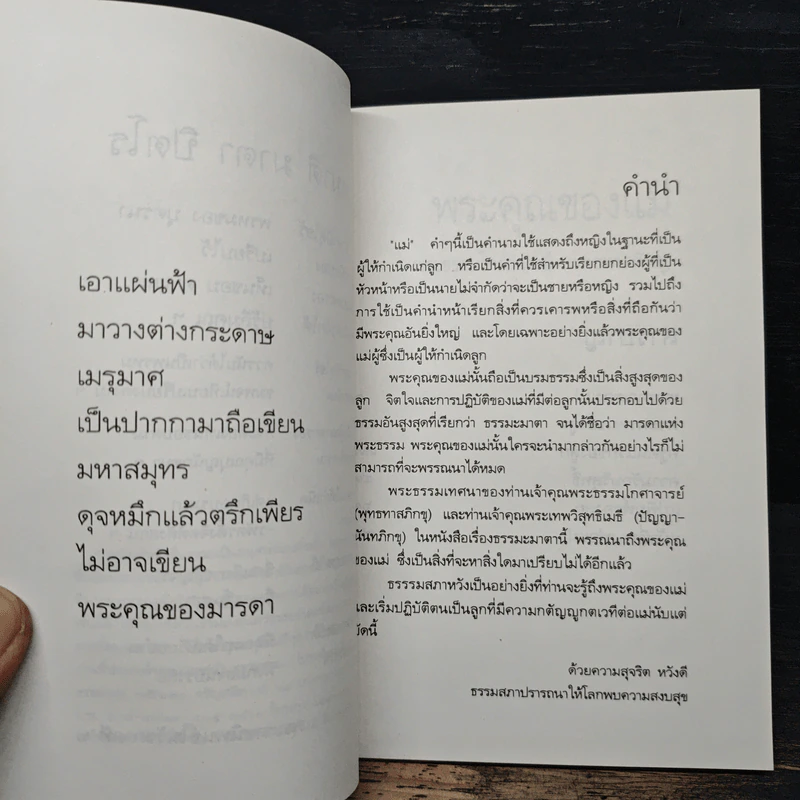 เอาแผ่นฟ้า
มาวางต่างกระดาษ
เมรุมาศ
เป็นปากกามาถือเขียน
มหาสมุทร
ดุจหมึกแล้วตรึกเพียร
ไม่อาจเขียน
พระคุณของมารดา
คำนำ
"แม่" คำๆนี้เป็นคำนามใช้แสดงถึงหญิงในฐานะที่เป็น
ผู้ให้กำเนิดแก่ลูก หรือเป็นคำที่ใช้สำหรับเรียกยกย่องผู้ที่เป็น
หัวหน้าหรือเป็นนายไม่จำกัดว่าจะเป็นชายหรือหญิง รวมไปถึง
การใช้เป็นคำนำหน้าเรียกสิ่งที่ควรเคารพหรือสิ่งที่ถือกันว่า
มีพระคุณอันยิ่งใหญ่ และโดยเฉพาะอย่างยิ่งแล้วพระคุณของ
แม่ผู้ซึ่งเป็นผู้ให้กำเนิดลูก
พระคุณของแม่นั้นถือเป็นบรมธรรมซึ่งเป็นสิ่งสูงสุดของ
ลูก จิตใจและการปฏิบัติของแม่ที่มีต่อลูกนั้นประกอบไปด้วย
ธรรมอันสูงสุดที่เรียกว่า ธรรมะมาตา จนได้ชื่อว่า มารดาแห่ง
พระธรรม พระคุณของแม่นั้นใครจะนำมากล่าวกันอย่างไรก็ไม่
สามารถที่จะพรรณนาได้หมด
พระธรรมเทศนาของท่านเจ้าคุณพระธรรมโกศาจารย์
(พุทธทาสภิกขุ) และท่านเจ้าคุณพระเทพวิสุทธิเมธี (ปัญญา-
นันทภิกขุ) ในหนังสือเรื่องธรรมะมาตานี้ พรรณนาถึงพระคุณ
ของแม่ ซึ่งเป็นสิ่งที่จะหาสิ่งใดมาเปรียบไม่ได้อีกแล้ว
ธรรมสภาหวังเป็นอย่างยิ่งที่ท่านจะรู้ถึงพระคุณของแม่
และเริ่มปฏิบัติตนเป็นลูกที่มีความกตัญญูกตเวทีต่อแม่นับแต่
บัดนี้
ด้วยความสุจริต หวังดี
ธรรมสภาปรารถนาให้โลกพบความสงบสุข